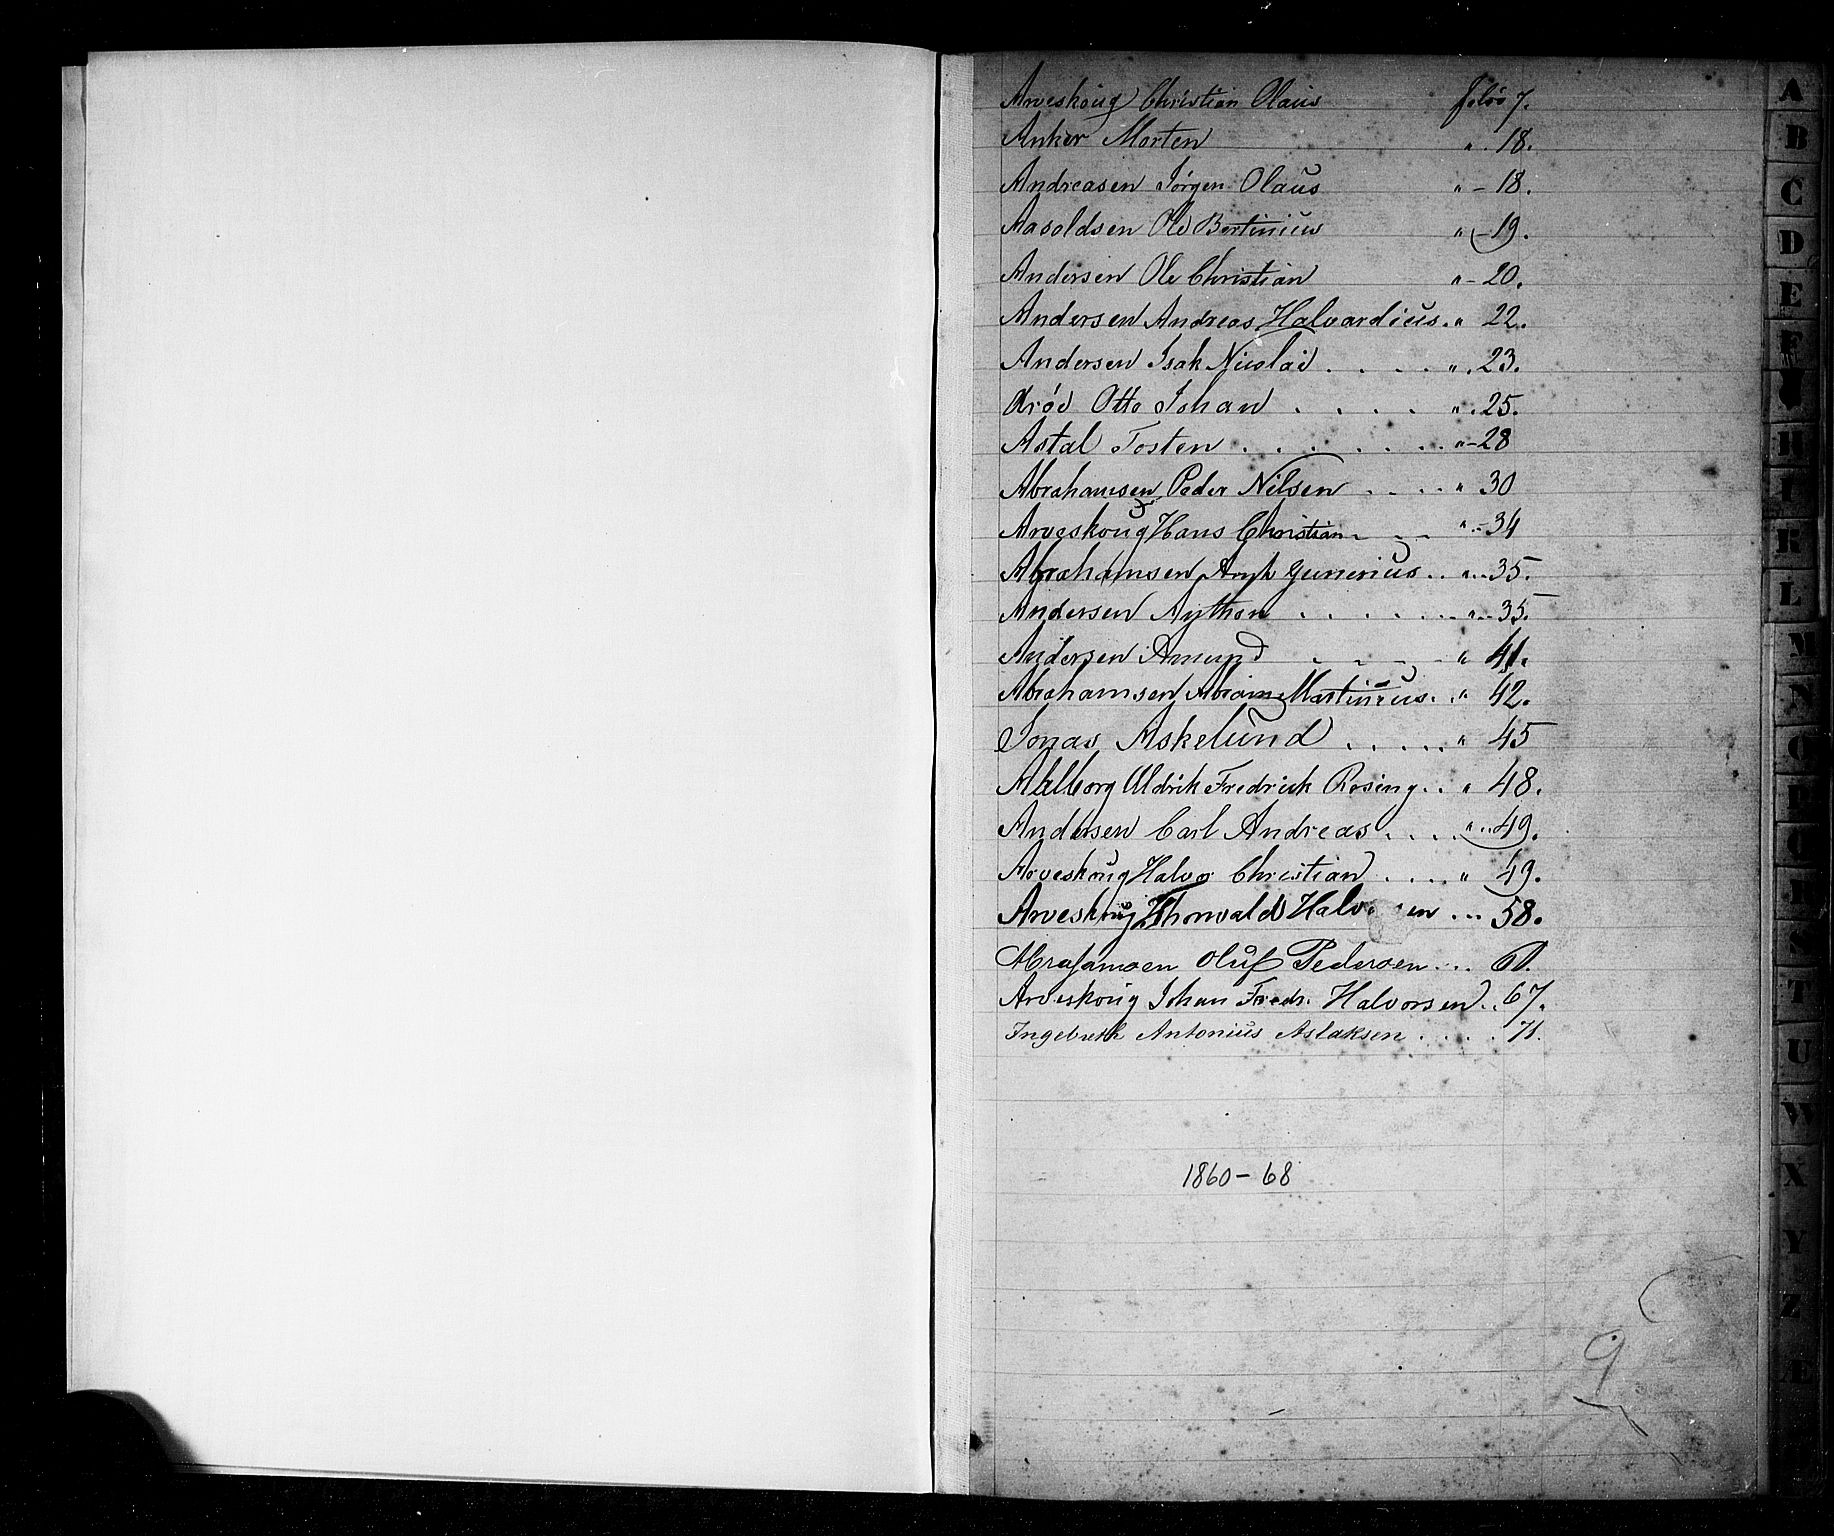 Arveskoug Christian Olaus folio 7.
Anker Morten " . 18.
Andreasen Jörgen Olaus " - 18.
Aasoldsen Ole Bertinius " - 19.
Andersen Ole Christian " - 20.
Andersen Andreas Halvardius . " 22.
Andersen Isak Nicolai . . . . " . 23.
Otto Johan . . . . " . 25.
Astal Tosten . . . . . . . " - 28
Abrahamsen Peder Nilsen . . . . " 30
Arveskoug Hans Christian " - 34
Abrahamsen Gunerius . . " 35.
Andersen Aython . . . . . . " 35.
Andersen Amund " 41.
Abrahamsen Abram Martinius . . " 42.
Jonas Askelund . . . . . " 45
Ahlborg Uldrik Fredrick Rosing . . " 48.
Andersen Carl Andreas . . . . " . . 49.
Arveskoug Halvor Christian . . . . " 49.
Arveskoug Thorvald Halv en . . . 58.
Abrahamsen Oluf Pedersen . . .
Arveskoug Johan Fredr. Halvorsen . . 67.
Ingebreth Antonius Aslaksen . . . . . 71.
1860-68
9
A
B
C
D
E
F
H
I
K
L
M
N
O
P
Q
R
S
T
U
W
X
Y
Z
Æ